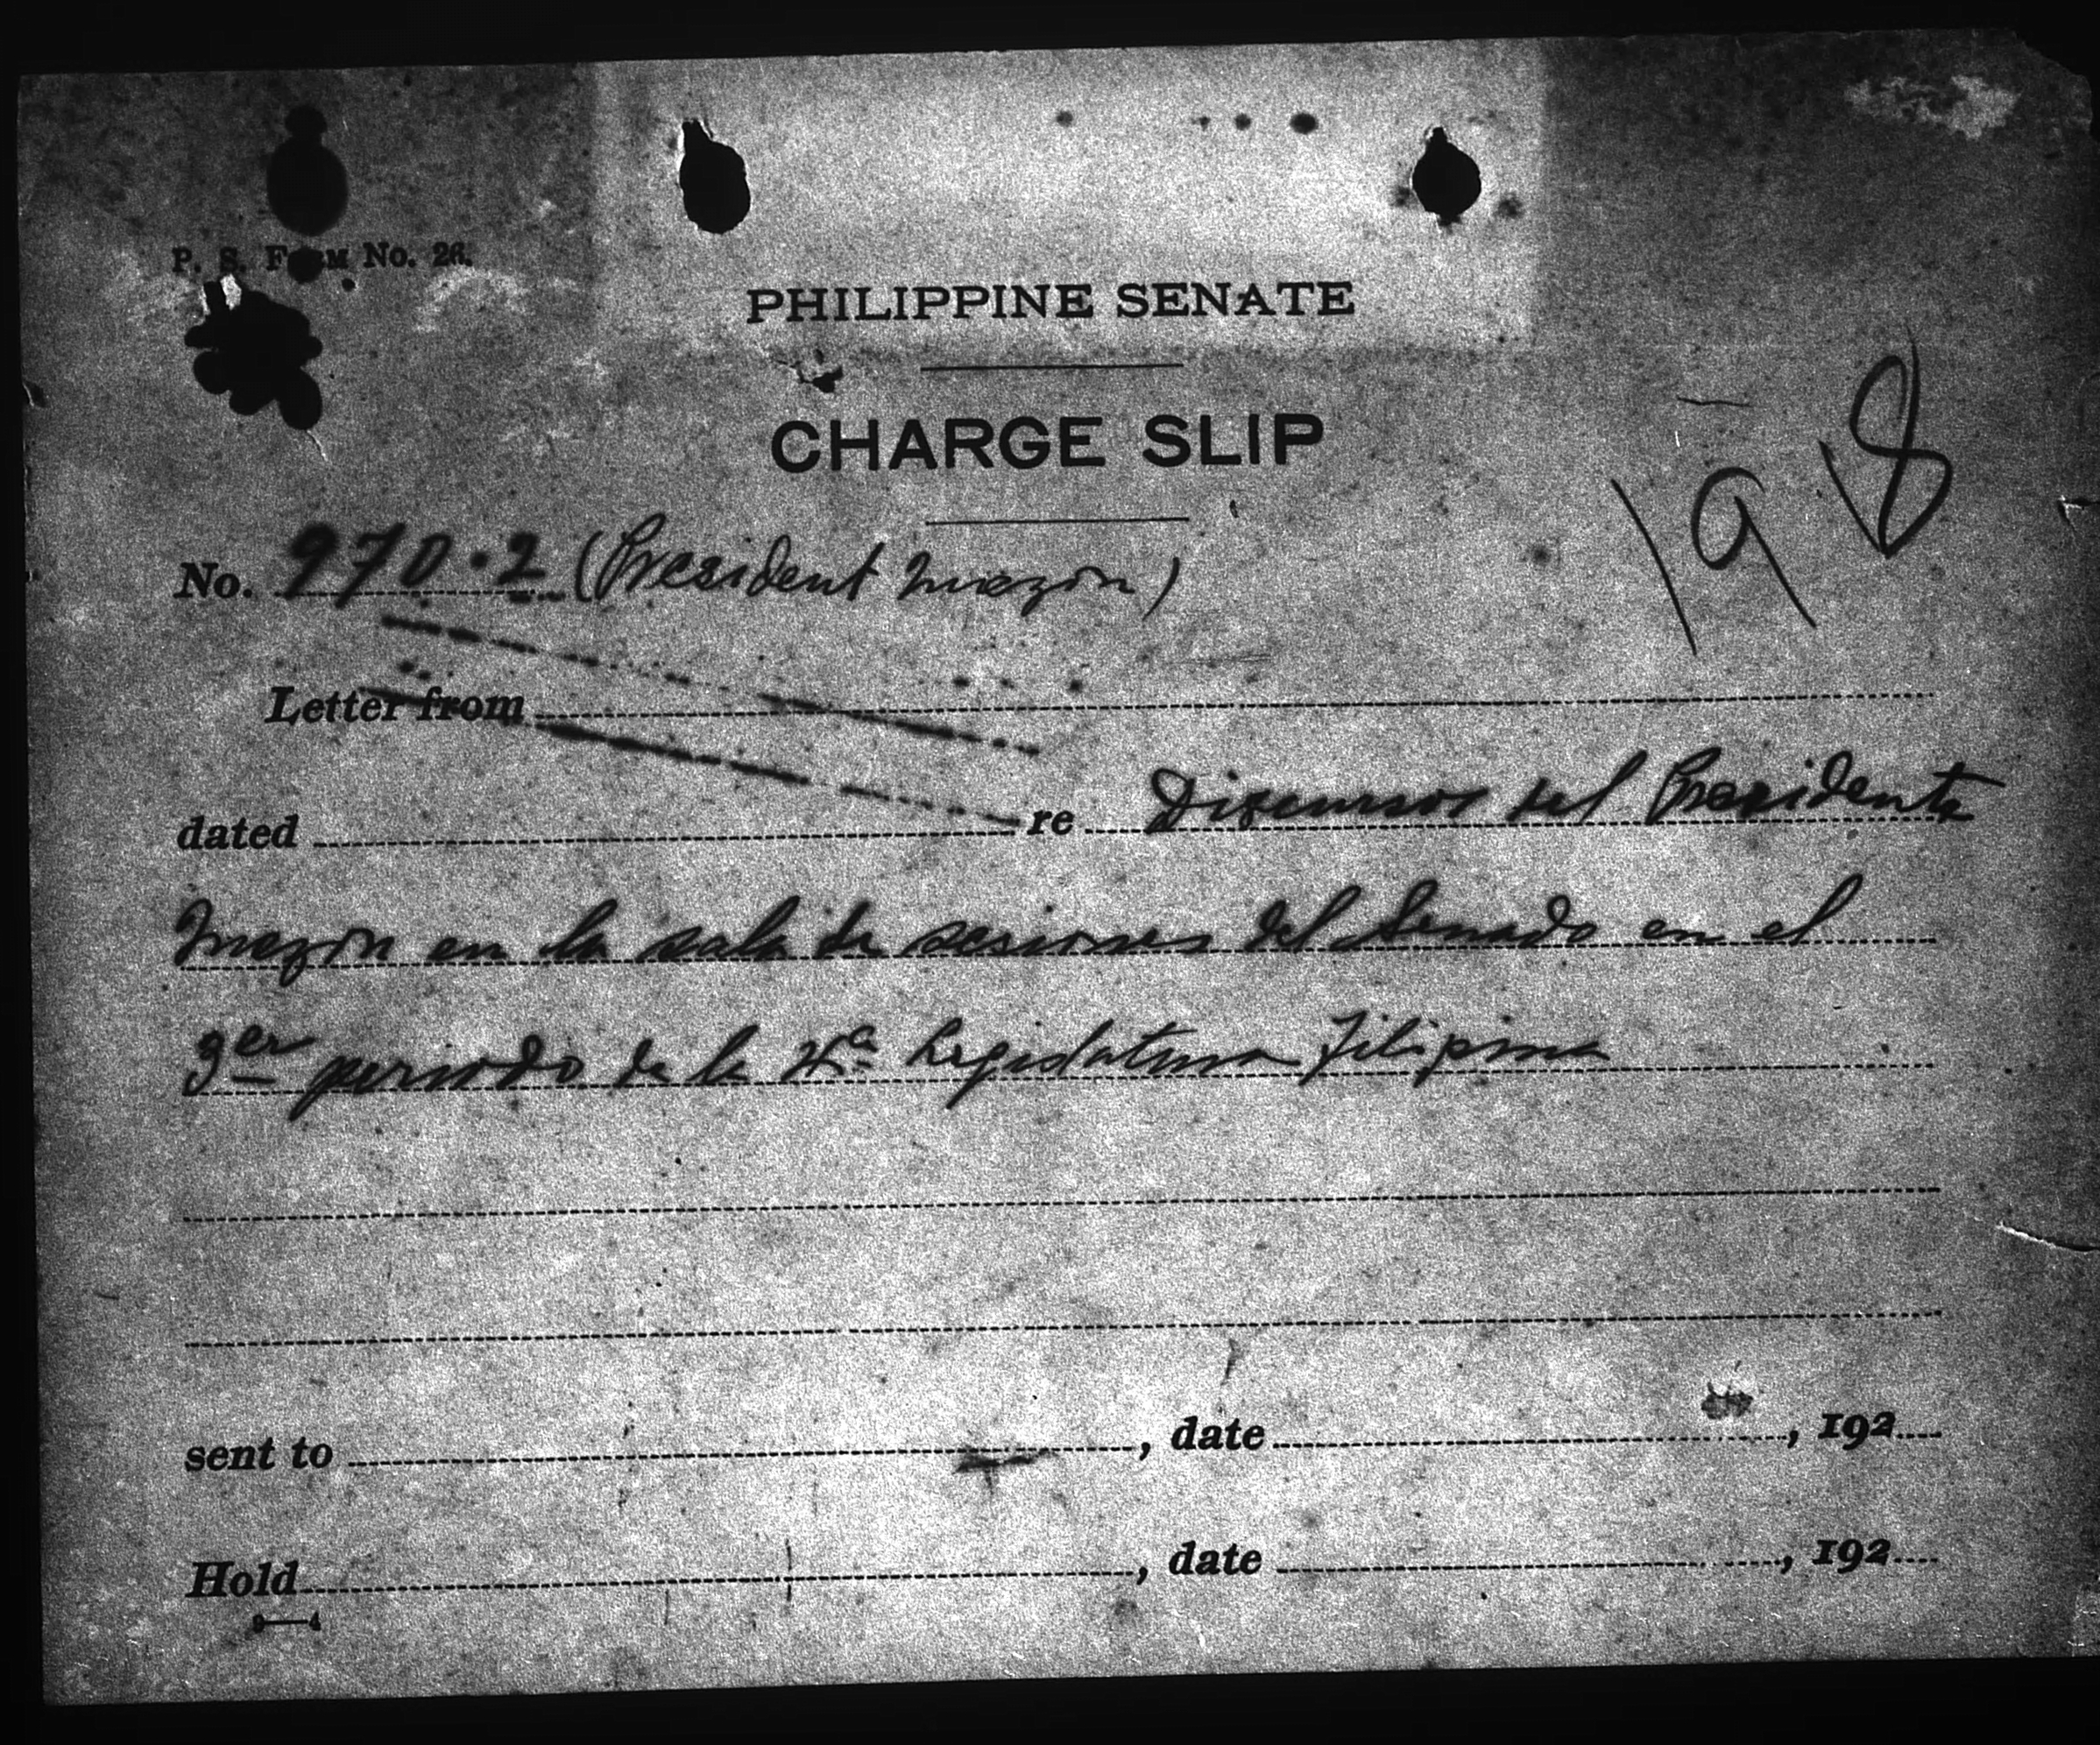 P. S. FORM No. 26.
PHILIPPINE SENATE
CHARGE SLIP
198
No. 970.2 (President Quezon)
Letter from
dated re Discursos del Presidente
Quezon en la sala de sesiones del Senado en el
3er periodo de la Legislatura Filipina
sent to , date , 192
Hold , date , 192
9—4